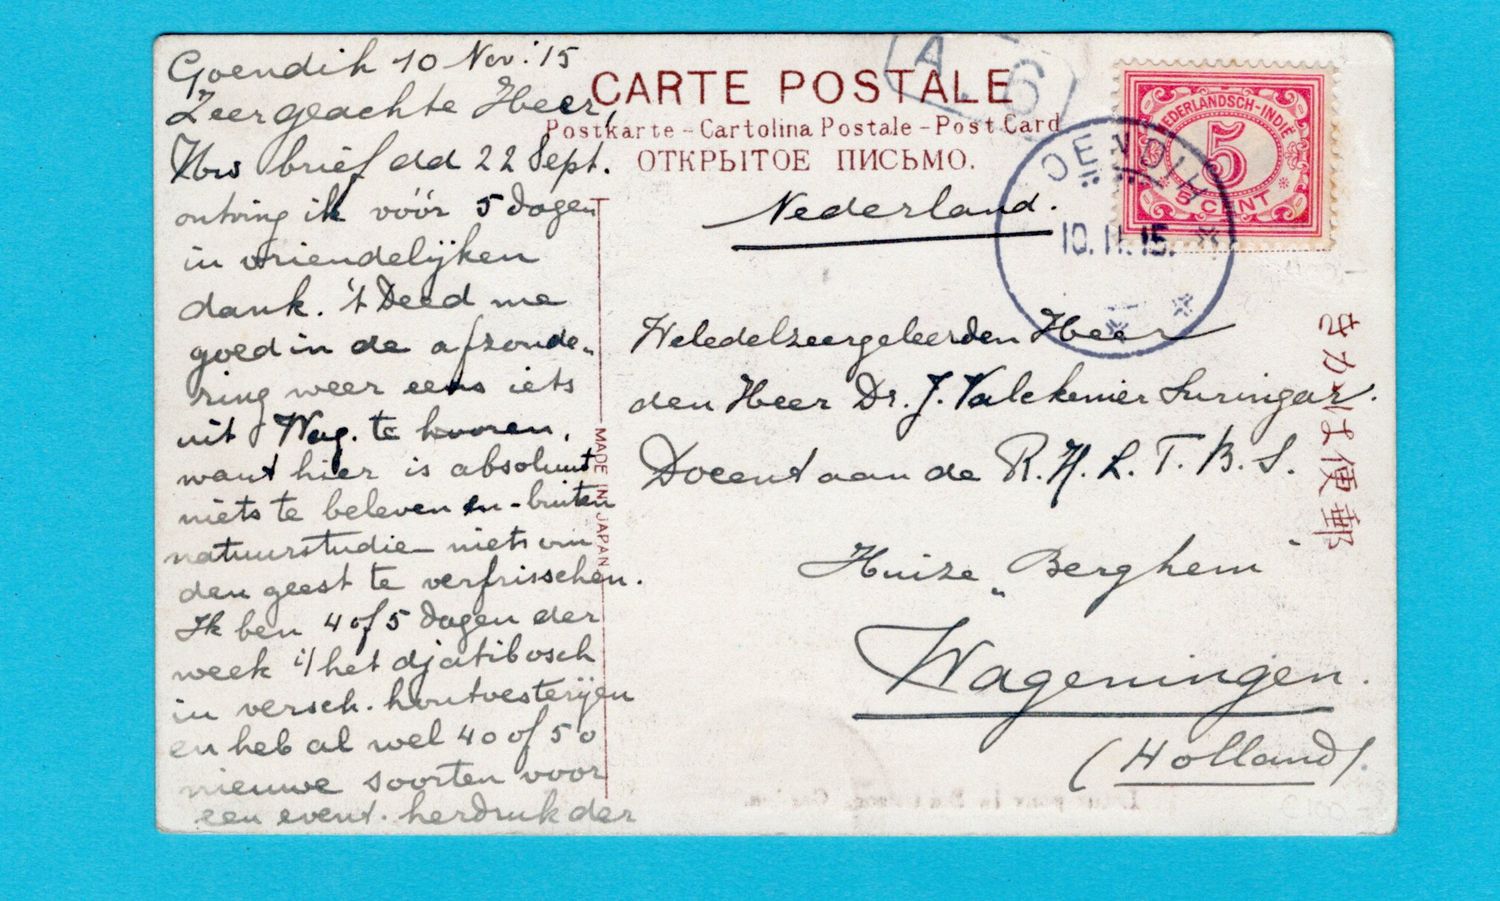 Goendih 10 Nov. '15
Zeergeachte Heer,
Uw brief dd 22 Sept.
ontving ik vóór 5 dagen
in vriendelijken
dank. 't Deed me
goed in de afzonde-
ring weer eens iets
uit Wag. te hooren,
want hier is absoluut
niets te beleven en buiten
natuurstudie niets om
den geest te verfrisschen.
Ik ben 4 of 5 dagen der
week i/ het djatibosch
in versch. houtvesterijen
en heb al wel 40 of 50
nieuwe soorten voor
een event. herdruk der
CARTE POSTALE
Postkarte - Cartolina Postale - Post Card
ОТКРЫТОЕ ПИСЬМО.
MADE IN JAPAN
A. 6
NEDERLANDSCH-INDIË
5
5 CENT
GOENDIH
10.11.15.
Nederland.
Weledelzeergeleerden Heer
den Heer Dr. J. Valckenier Suringar.
Docent aan de R. H. L. T. B. S.
Huize „Berghem"
Wageningen.
(Holland).
きかは便郵